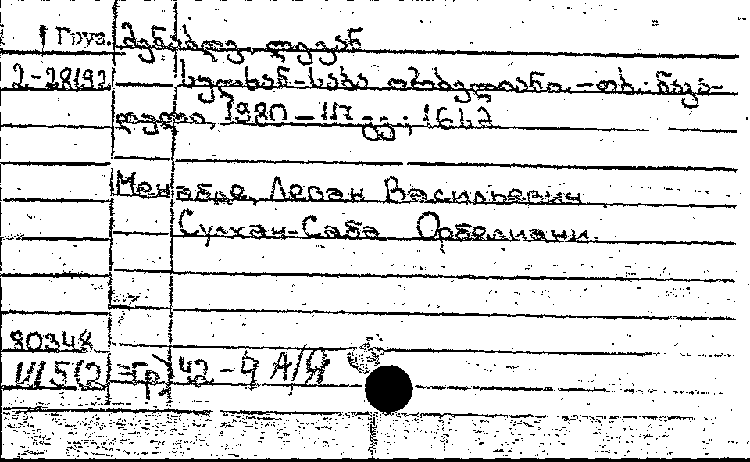 Груз. მენაბდე, ლევან
2-28192 სულხან-საბა ორბელიანი. – თბ.: ნაკა-
დული, 1980 – 117 გვ.; 16 სმ
Менабде, Леван Васильевич
Сулхан-Саба Орбелиани.
80348
42 – 4 А/Я